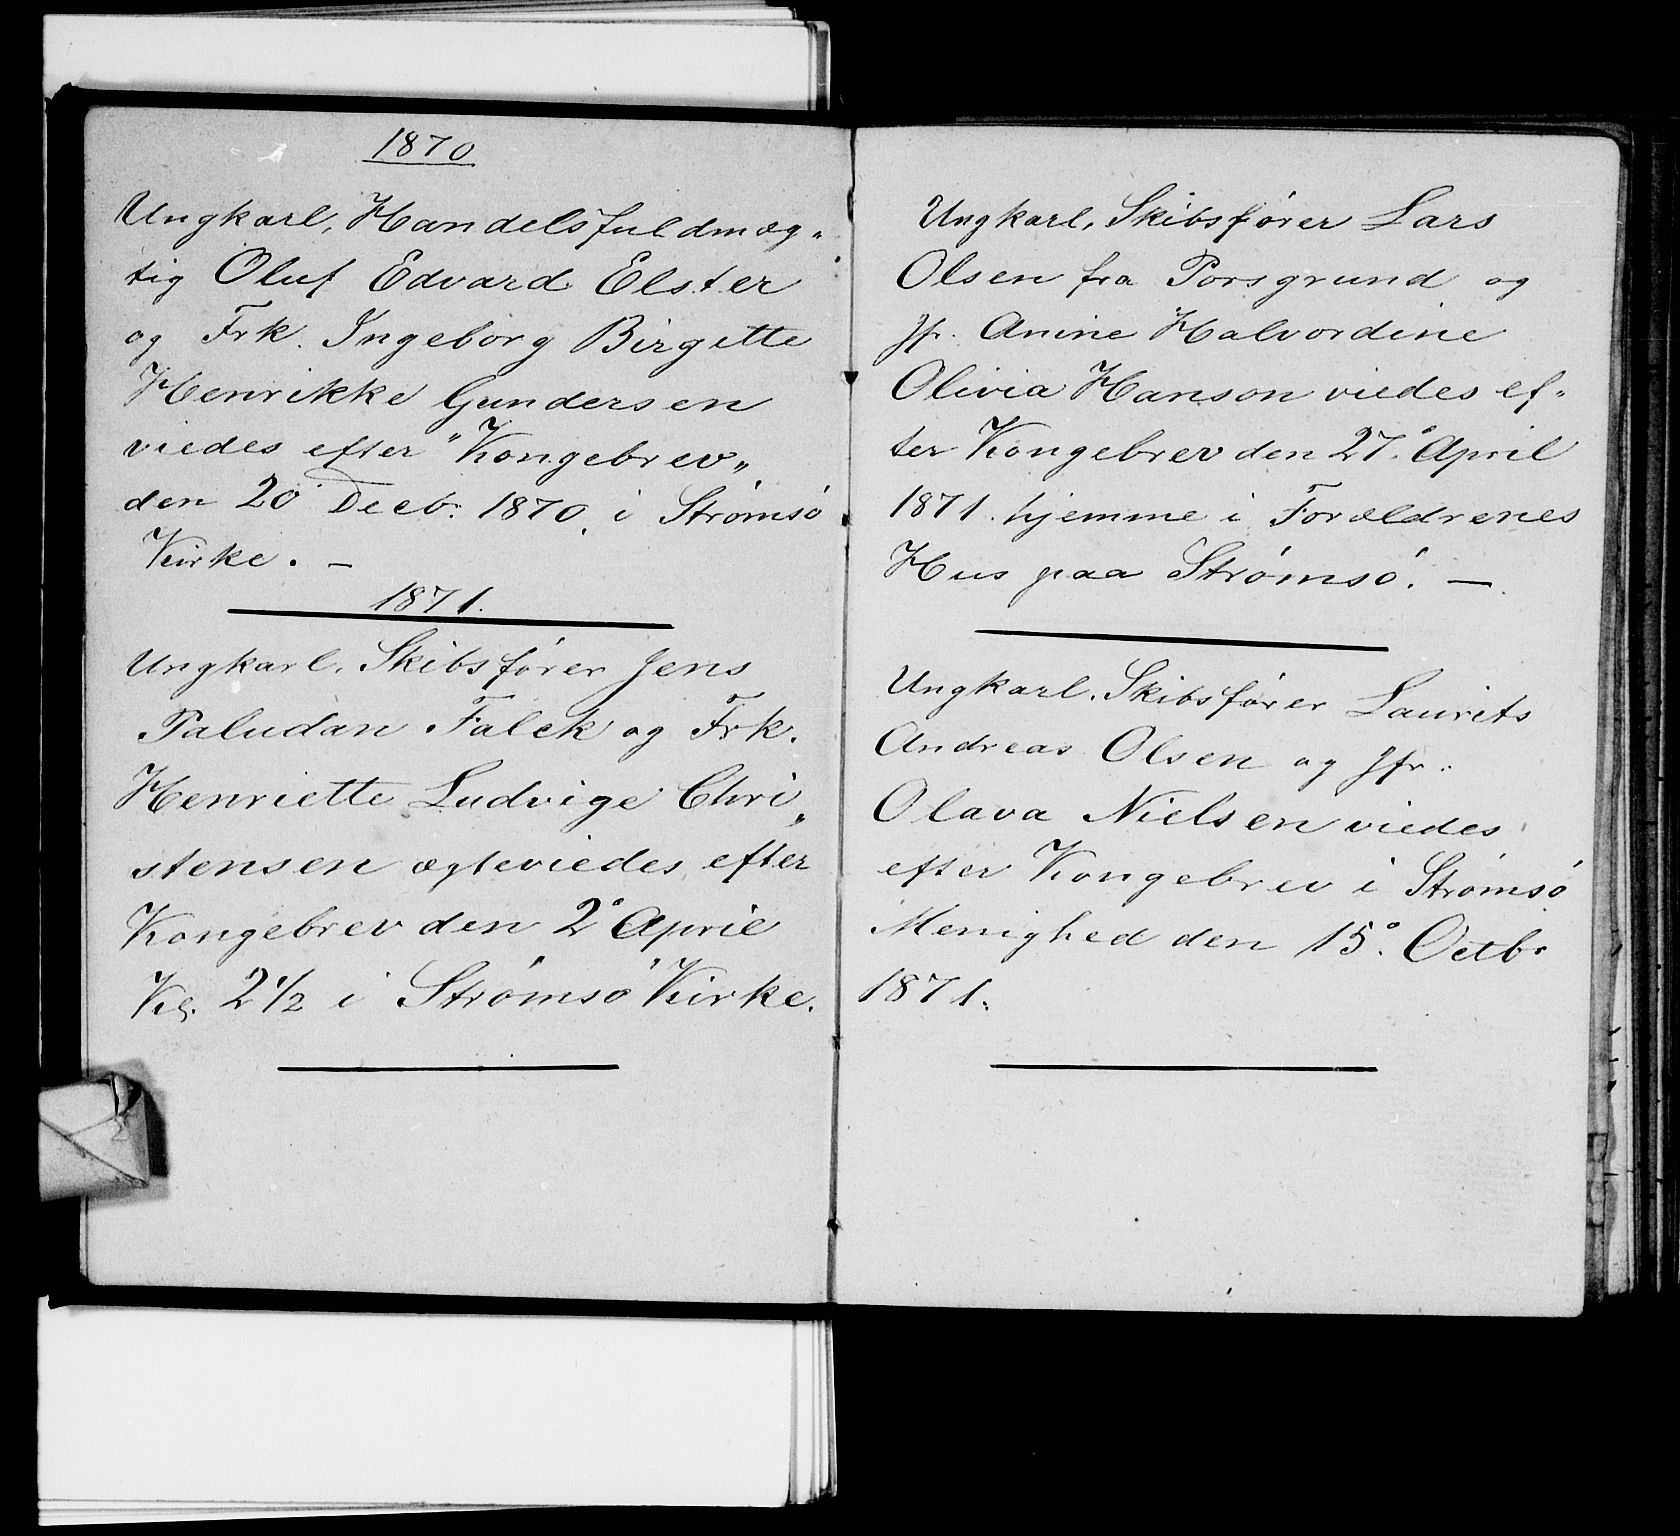 1870
Ungkarl, Handelsfuldmæg„
tig Oluf Edvard Elster
og Frk. Ingeborg Birgitte
Henrikke Gundersen
viedes efter "Kongebrev„
den 20' Decb. 1870. i Strømsö
Kirke. —
1871.
Ungkarl. Skibsfører Jens
Paludan Falck og Frk.
Henriette Ludvige Chri„
stensen ægteviedes efter
Kongebrev den 2° April
Kl. 2 1/2 i Strømsö Kirke.
Ungkarl, Skibsfører Lars
Olsen fra Porsgrund og
Jfr. Anine Halvordine
Olivia Hanson viedes ef„
ter Kongebrev den 27° April
1871. hjemme i Forældrenes
Hus paa Strømsö. —
Ungkarl. Skibsfører Laurits
Andreas Olsen og Jfr.
Olava Nielsen viedes
efter Kongebrev i Strømsö
Menighed den 15° Octbr
1871.